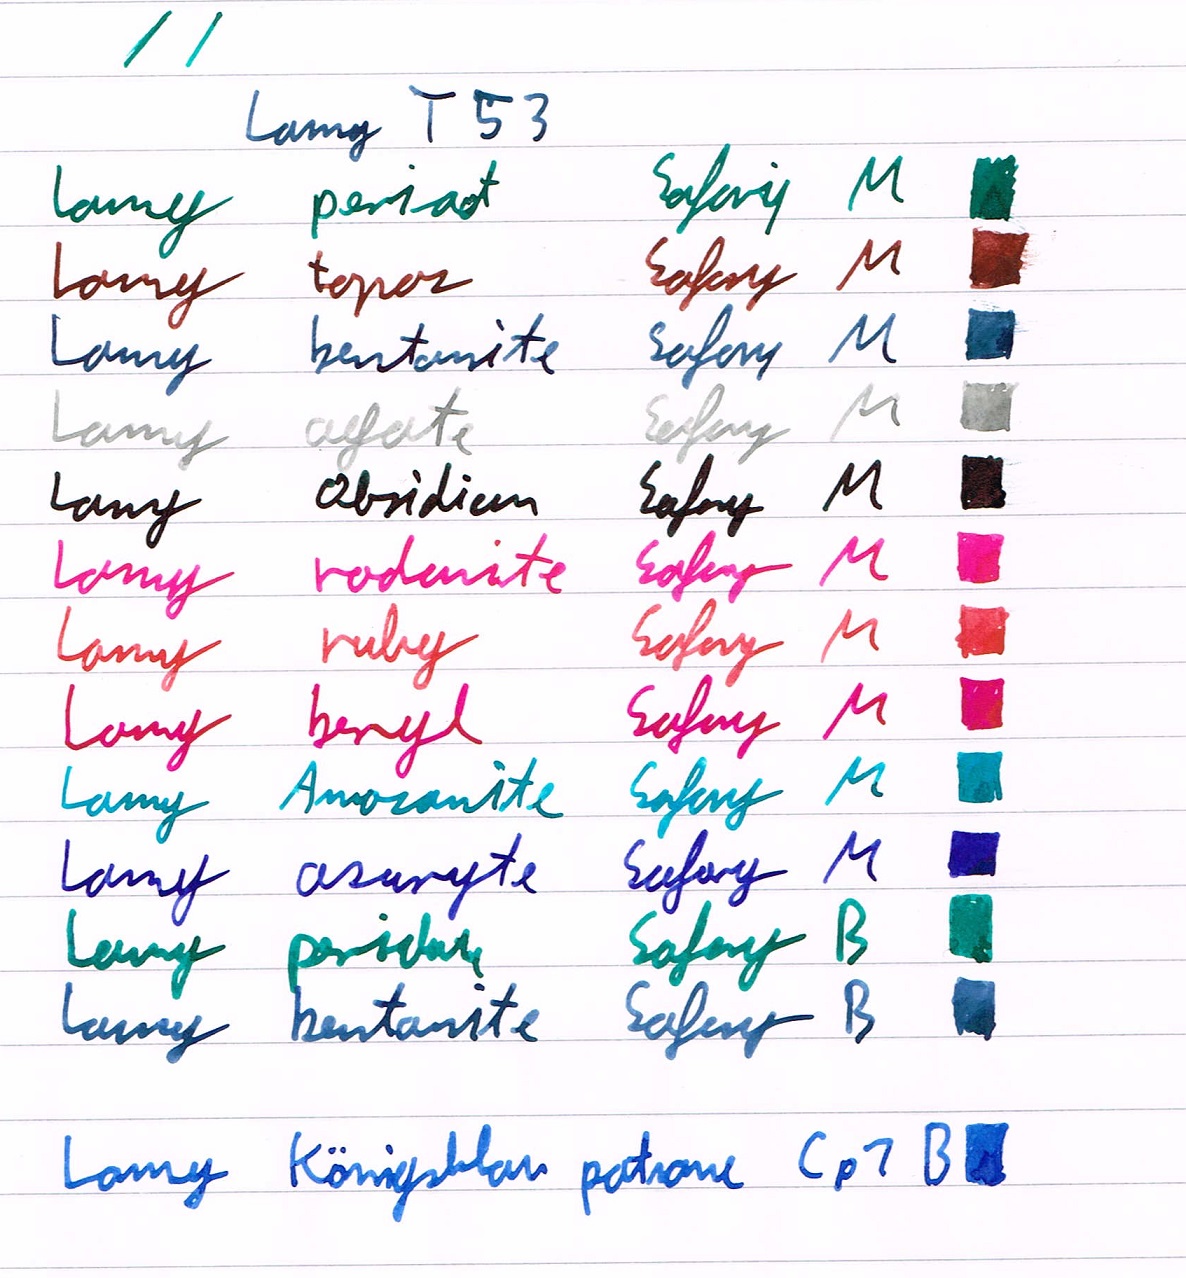 Lamy T 53
Lamy peridot Safary M
Lamy topas Safary M
Lamy bentonite Safary M
Lamy agate Safary M
Lamy obsidian Safary M
Lamy rodonite Safary M
Lamy ruby Safary M
Lamy beryl Safary M
Lamy Amozonite Safary M
Lamy azuryte Safary M
Lamy peridot Safary B
Lamy bentonite Safary B
Lamy Königsblau patrone Cp7 B